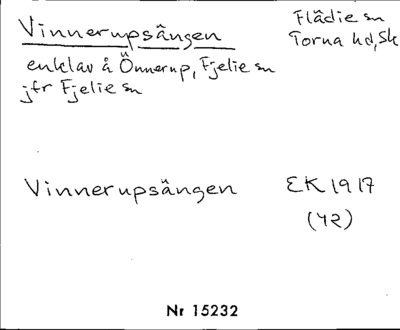 Vinnerupsängen
Flädie sn
Torna hd, Sk
enklav å Önnerup, Fjelie sn
jfr Fjelie sn
Vinnerupsängen
EK 1917
(42)
Nr 15232